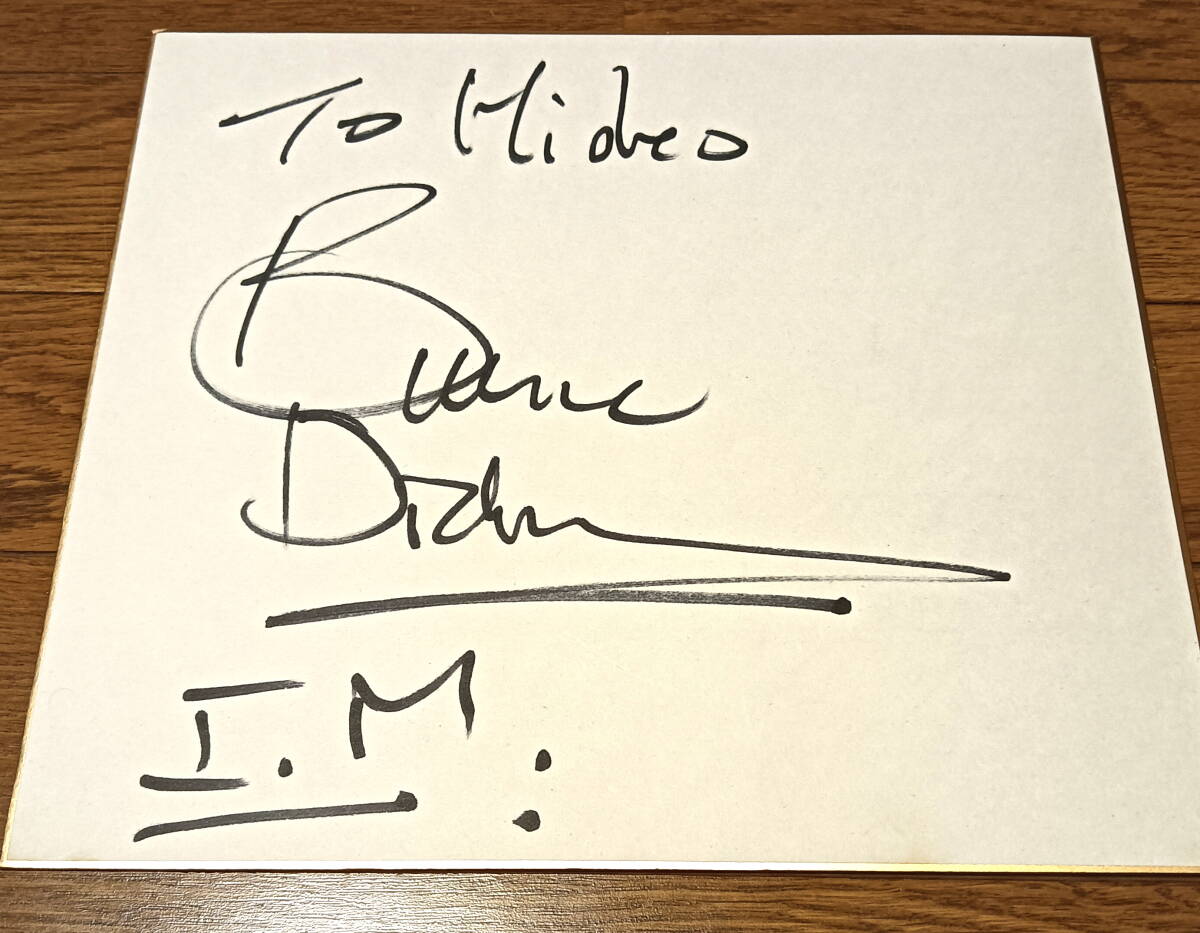 To Hideo
Bruce
Dickinson
I.M.